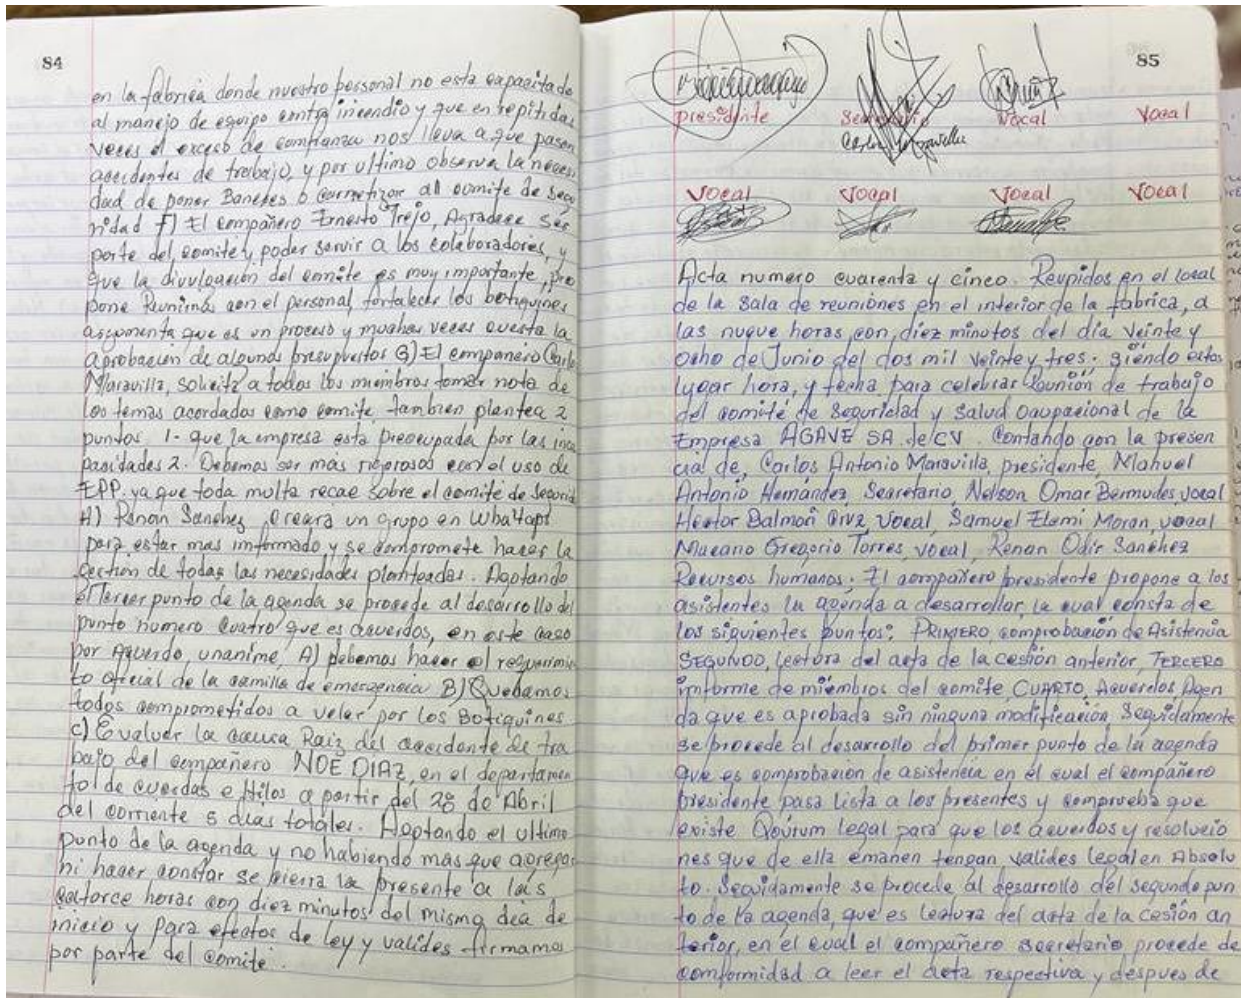 84
en la fabrica donde nuestro personal no esta capacitado
al manejo de equipo contra incendio y que en repitidas
veces el exceso de comfianza nos lleva a que pasen
accidentes de trabajo, y por ultimo observa la neces
dad de poner Baneres o carnetizar al comite de segu
ridad F) El compañero Ernesto Trejo, Agradece ser
parte del comite y poder servir a los colaboradores, y
que la divulgación del comite es muy importante, pro
pone Reunirnos con el personal, fortalecer los botiquines
argumenta que es un proceso y muchas veces cuesta la
aprobación de algunos presupuestos G) El compañero Carlos
Maravilla, solicita a todos los miembros tomar nota de
los temas acordados como comite, tambien plantea 2
puntos 1- que la empresa esta preocupada por las inca
pasidades 2. Debemos ser más rigorosos con el uso de
EPP. ya que toda multa recae sobre el comite de segurid
H) Renan Sanchez, creara un grupo en Whatapt
para estar mas imformado y se compromete hacer la
gestion de todas las necesidades plantteadas. Agotando
el tercer punto de la agenda se procede al desarrollo del
punto numero cuatro que es acuerdos, en este caso
por Acuerdo, unanime, A) debemos hacer el requerimin
to oficial de la camilla de emergencia B) Quedamos
todos comprometidos a velar por los Botiquines
C) Evaluar la causa Raiz del accidente de tra
bajo del compañero NOE DIAZ, en el departamen
to de cuerdas e Hilos a partir del 28 de Abril
del corriente 5 dias totales. Agotando el ultimo
punto de la agenda y no habiendo mas que agregar
ni hacer constar se cierra la presente a las
catorce horas con diez minutos del mismo dia de
inicio y para efectos de ley y valides firmamos
por parte del comité.
85
presidente Secretario vocal vocal
vocal vocal vocal vocal
Acta numero cuarenta y cinco. Reunidos en el local
de la sala de reuniones en el interior de la fabrica, a
las nueve horas con diez minutos del dia veinte y
ocho de Junio del dos mil veinte y tres. siendo estos
lugar hora, y fecha para celebrar Reunión de trabajo
del comité de Seguridad y Salud Ocupacional de la
Empresa AGAVE SA de CV. Contando con la presen
cia de, Carlos Antonio Maravilla, presidente, Manuel
Antonio Hernández, Secretario, Nelson Omar Bermudes vocal
Hector Balmon Cruz, Vocal, Samuel Elami Moran, vocal
Macario Gregorio Torres, vocal, Renan Odir Sanchez
Recursos humanos. El compañero presidente propone a los
asistentes la agenda a desarrollar, la cual consta de
los siguientes puntos: PRIMERO, comprobación de Asistencia
SEGUNDO, lectura del acta de la cesión anterior, TERCERO
imforme de miembros del comite, CUARTO, Acuerdos, Agen
da que es aprobada sin ninguna modificación, seguidamente
se procede al desarrollo del primer punto de la agenda
que es comprobación de asistencia en el cual el compañero
presidente pasa lista a los presentes y comprueba que
existe Qourum legal para que los acuerdos y resolucio
nes que de ella emanen tengan valides legal en Absolu
to. Seguidamente se procede al desarrollo del segundo pun
to de la agenda, que es lectura del acta de la cesión an
terior, en el cual el compañero secretario procede de
comformidad a leer el acta respectiva y despues de